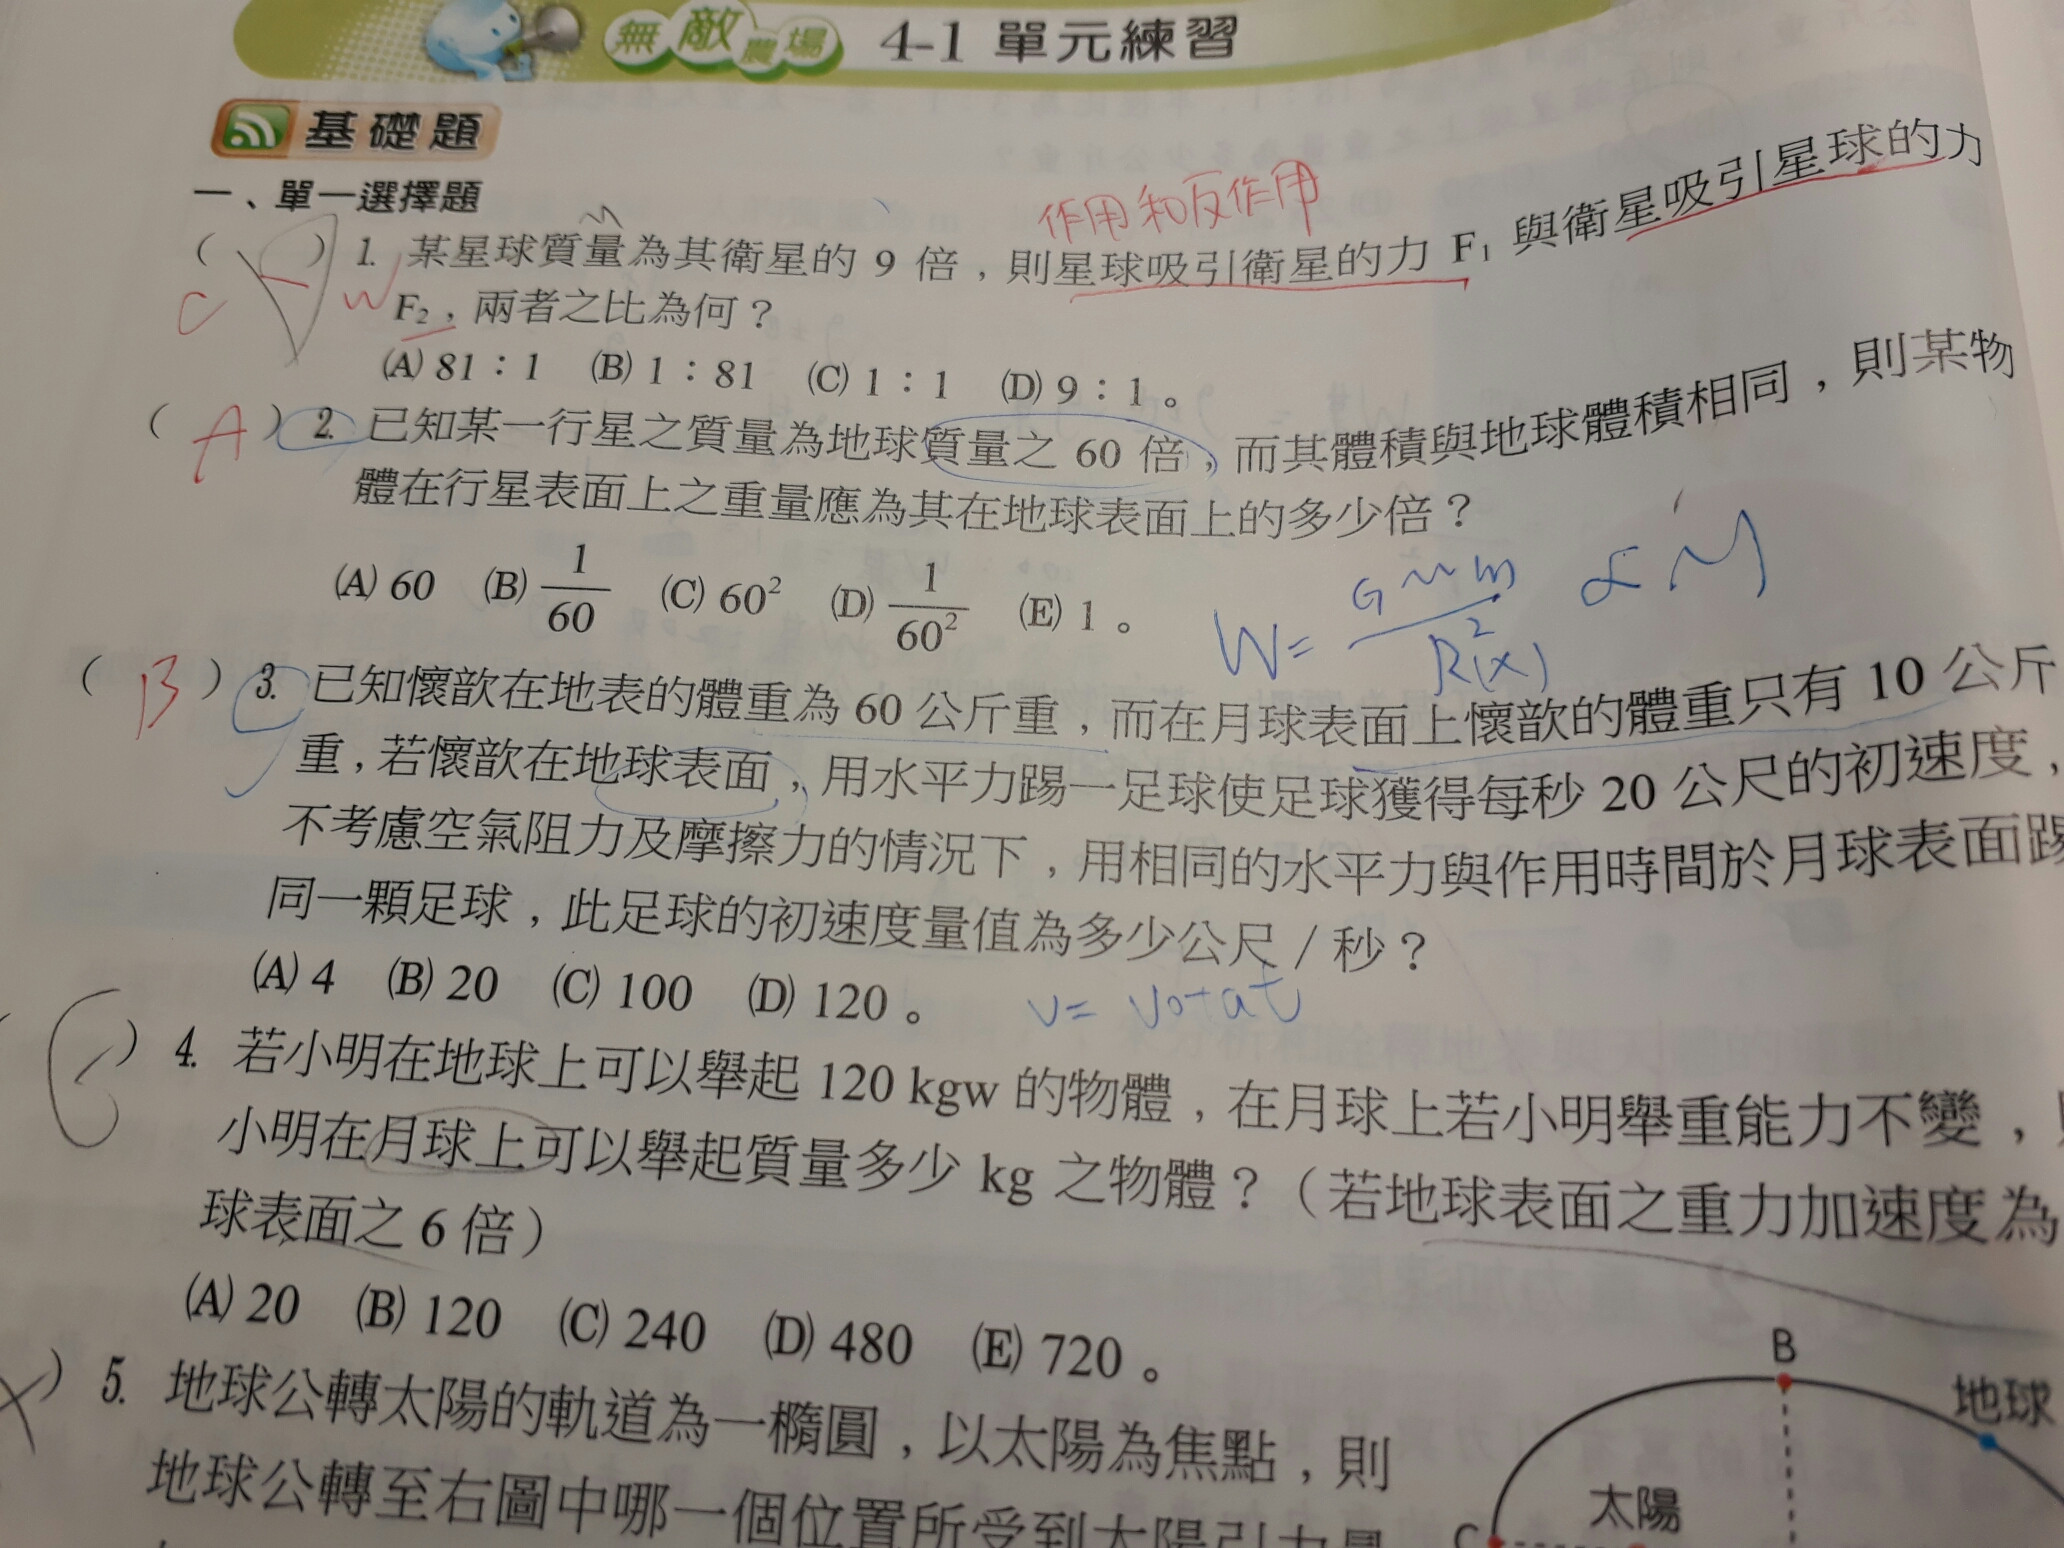 無敵農場 4-1 單元練習
基礎題
一、單一選擇題
作用和反作用
m
( ) 1. 某星球質量為其衛星的 9 倍，則星球吸引衛星的力 F₁ 與衛星吸引星球的力
C W F₂，兩者之比為何？
(A) 81：1 (B) 1：81 (C) 1：1 (D) 9：1。
( A ) 2. 已知某一行星之質量為地球質量之 60 倍，而其體積與地球體積相同，則某物
體在行星表面上之重量應為其在地球表面上的多少倍？
(A) 60 (B) 1/60 (C) 60² (D) 1/60² (E) 1。
W = GMm/R²(x) ∝ M
( B ) 3. 已知懷歆在地表的體重為 60 公斤重，而在月球表面上懷歆的體重只有 10 公斤
重，若懷歆在地球表面，用水平力踢一足球使足球獲得每秒 20 公尺的初速度，
不考慮空氣阻力及摩擦力的情況下，用相同的水平力與作用時間於月球表面踢
同一顆足球，此足球的初速度量值為多少公尺／秒？
(A) 4 (B) 20 (C) 100 (D) 120。
v = v0+at
) 4. 若小明在地球上可以舉起 120 kgw 的物體，在月球上若小明舉重能力不變，
小明在月球上可以舉起質量多少 kg 之物體？（若地球表面之重力加速度為
球表面之 6 倍）
(A) 20 (B) 120 (C) 240 (D) 480 (E) 720。
) 5. 地球公轉太陽的軌道為一橢圓，以太陽為焦點，則
地球公轉至右圖中哪一個位置所受到太陽引力最
B
地球
太陽
C